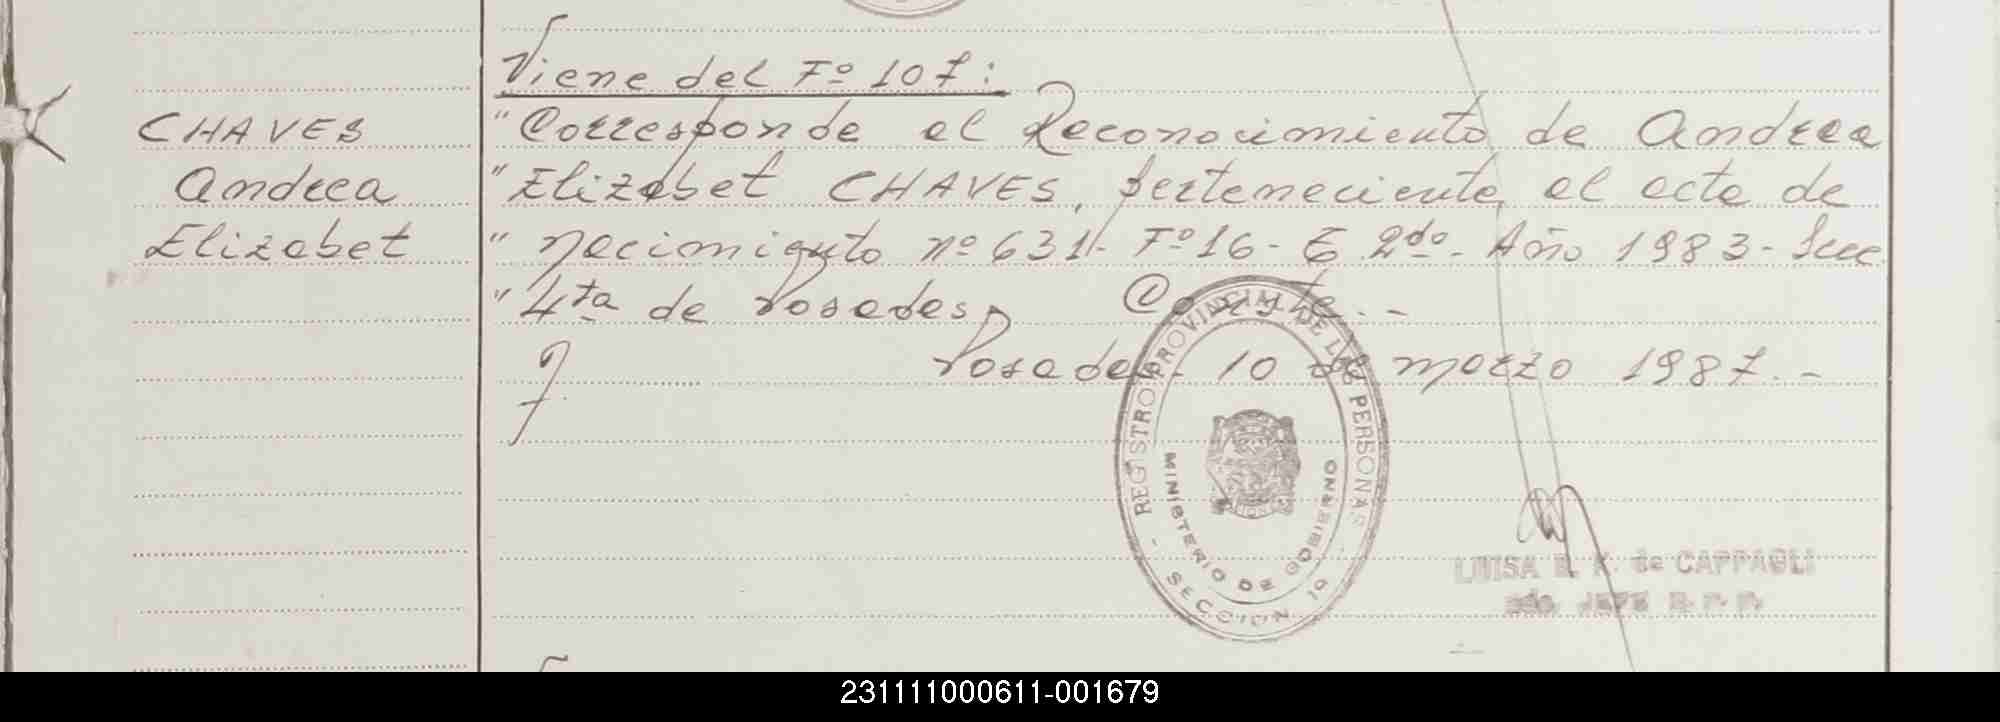 Viene del Fº 107:
CHAVES
Andrea
Elizabet
"Corresponde al Reconocimiento de Andrea
"Elizabet CHAVES, perteneciente al acta de
"nacimiento nº 631- Fº 16- T 2do- Año 1983- Secc
"4ta de Posadas, Conste.-
Posadas- 10 de marzo 1987.-
REGISTRO PROVINCIAL DE LAS PERSONAS
MINISTERIO DE GOBIERNO
- SECCION 1ª
LUISA E. K. de CAPPAGLI
JEFE R.P.P.
231111000611-001679